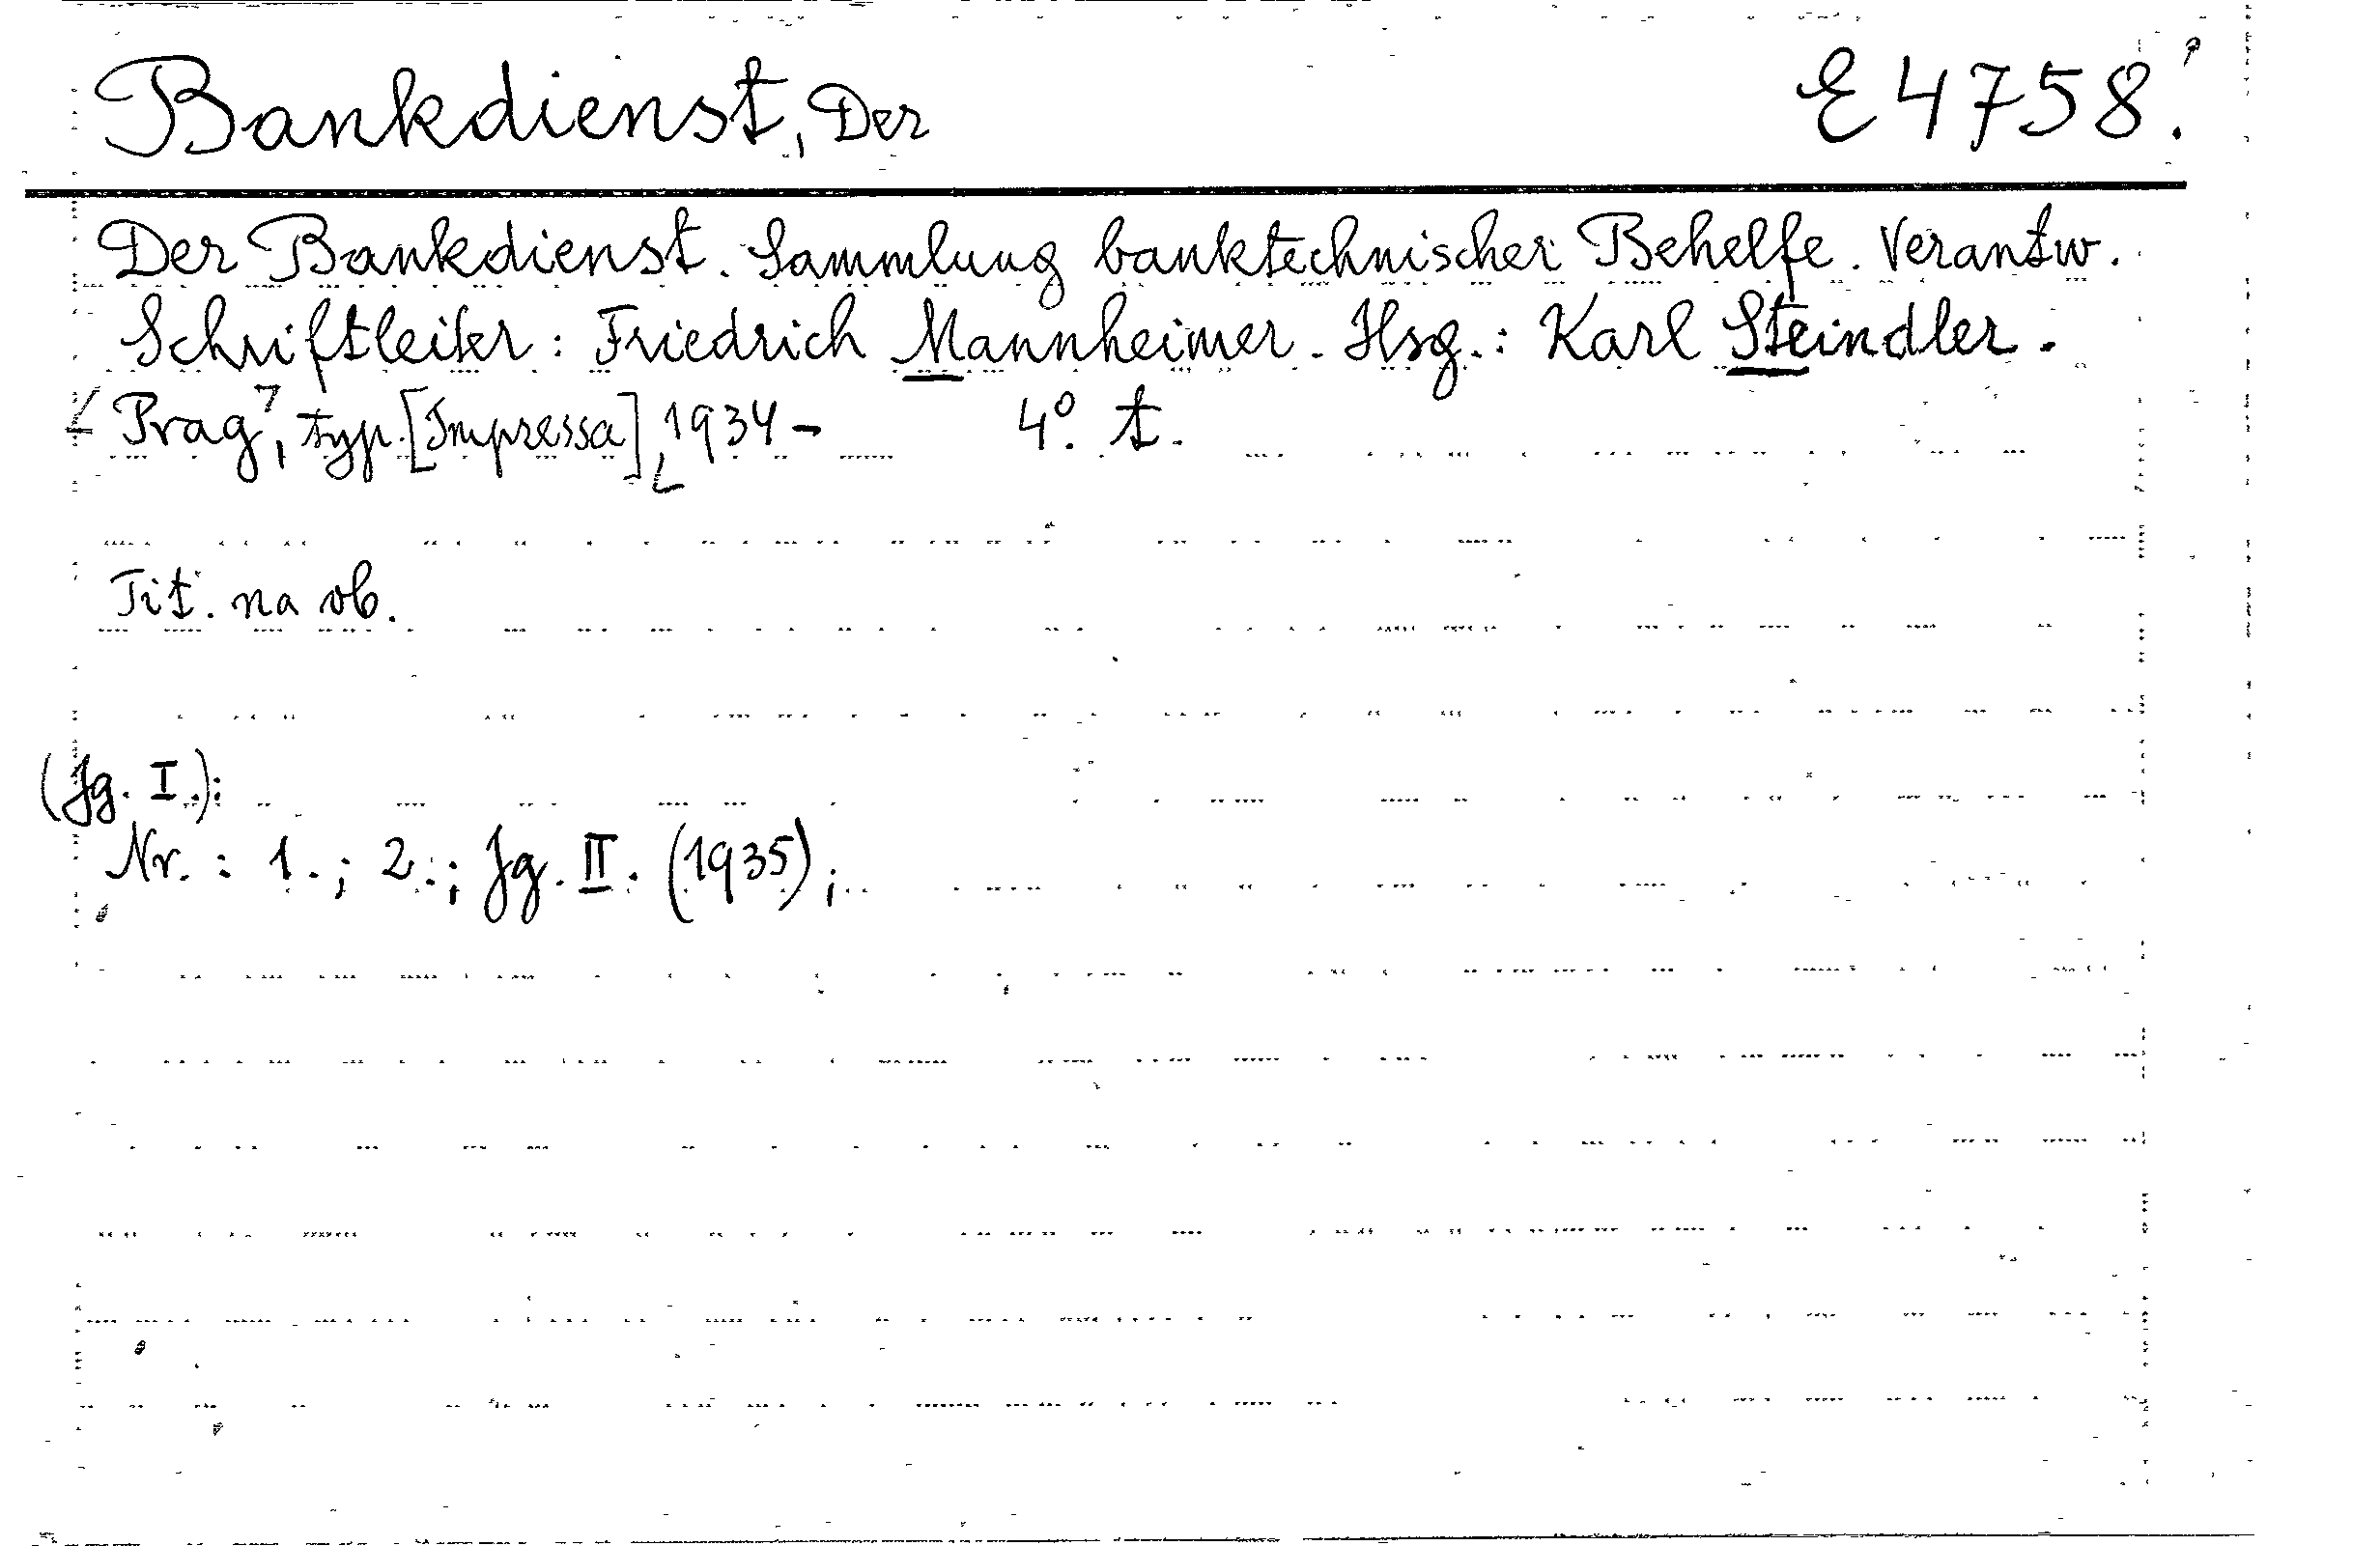 Bankdienst, Der E 4758.
Der Bankdienst. Sammlung banktechnischer Behelfe. Verantw.
Schriftleiter: Friedrich Mannheimer. Hsg.: Karl Steindler.
Prag, typ. [Impressa], 1934- 4°. t.
Tit. na ob.
(Jg. I.):
Nr.: 1.; 2.; Jg. II. (1935);